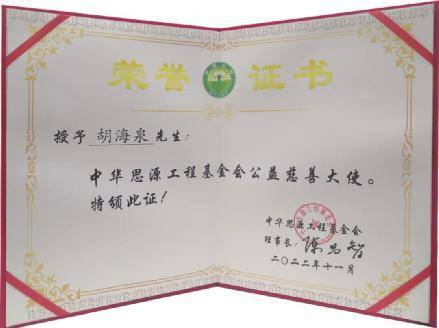 荣誉证书
授予 胡海泉 先生：
中华思源工程基金会公益慈善大使。
特颁此证！
中华思源工程基金会
理事长：陈昌智
二〇二二年十一月